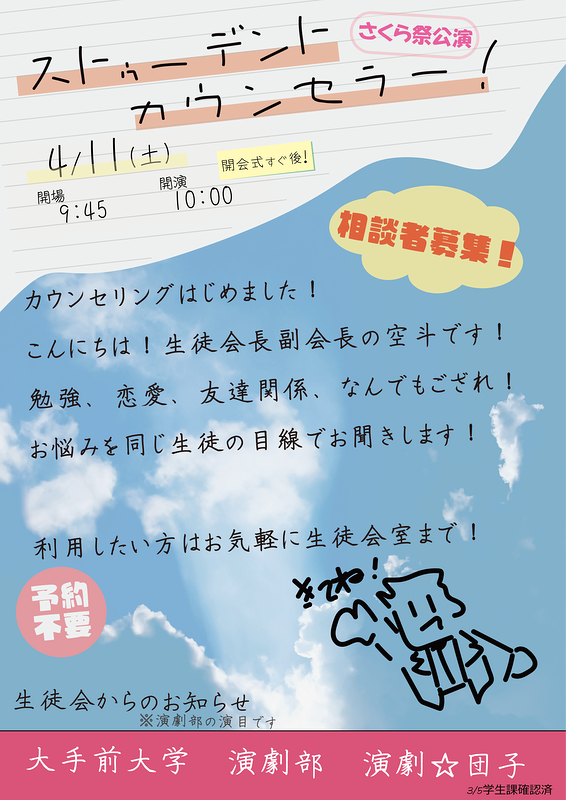 さくら祭公演
ストゥーデント
カウンセラー！
4/11(土)
開会式すぐ後！
開場
9:45
開演
10:00
相談者募集！
カウンセリングはじめました！
こんにちは！生徒会長副会長の空斗です！
勉強、恋愛、友達関係、なんでもござれ！
お悩みを同じ生徒の目線でお聞きします！
利用したい方はお気軽に生徒会室まで！
きてね！
予約
不要
生徒会からのお知らせ
※演劇部の演目です
大手前大学　演劇部　演劇☆団子
3/5学生課確認済